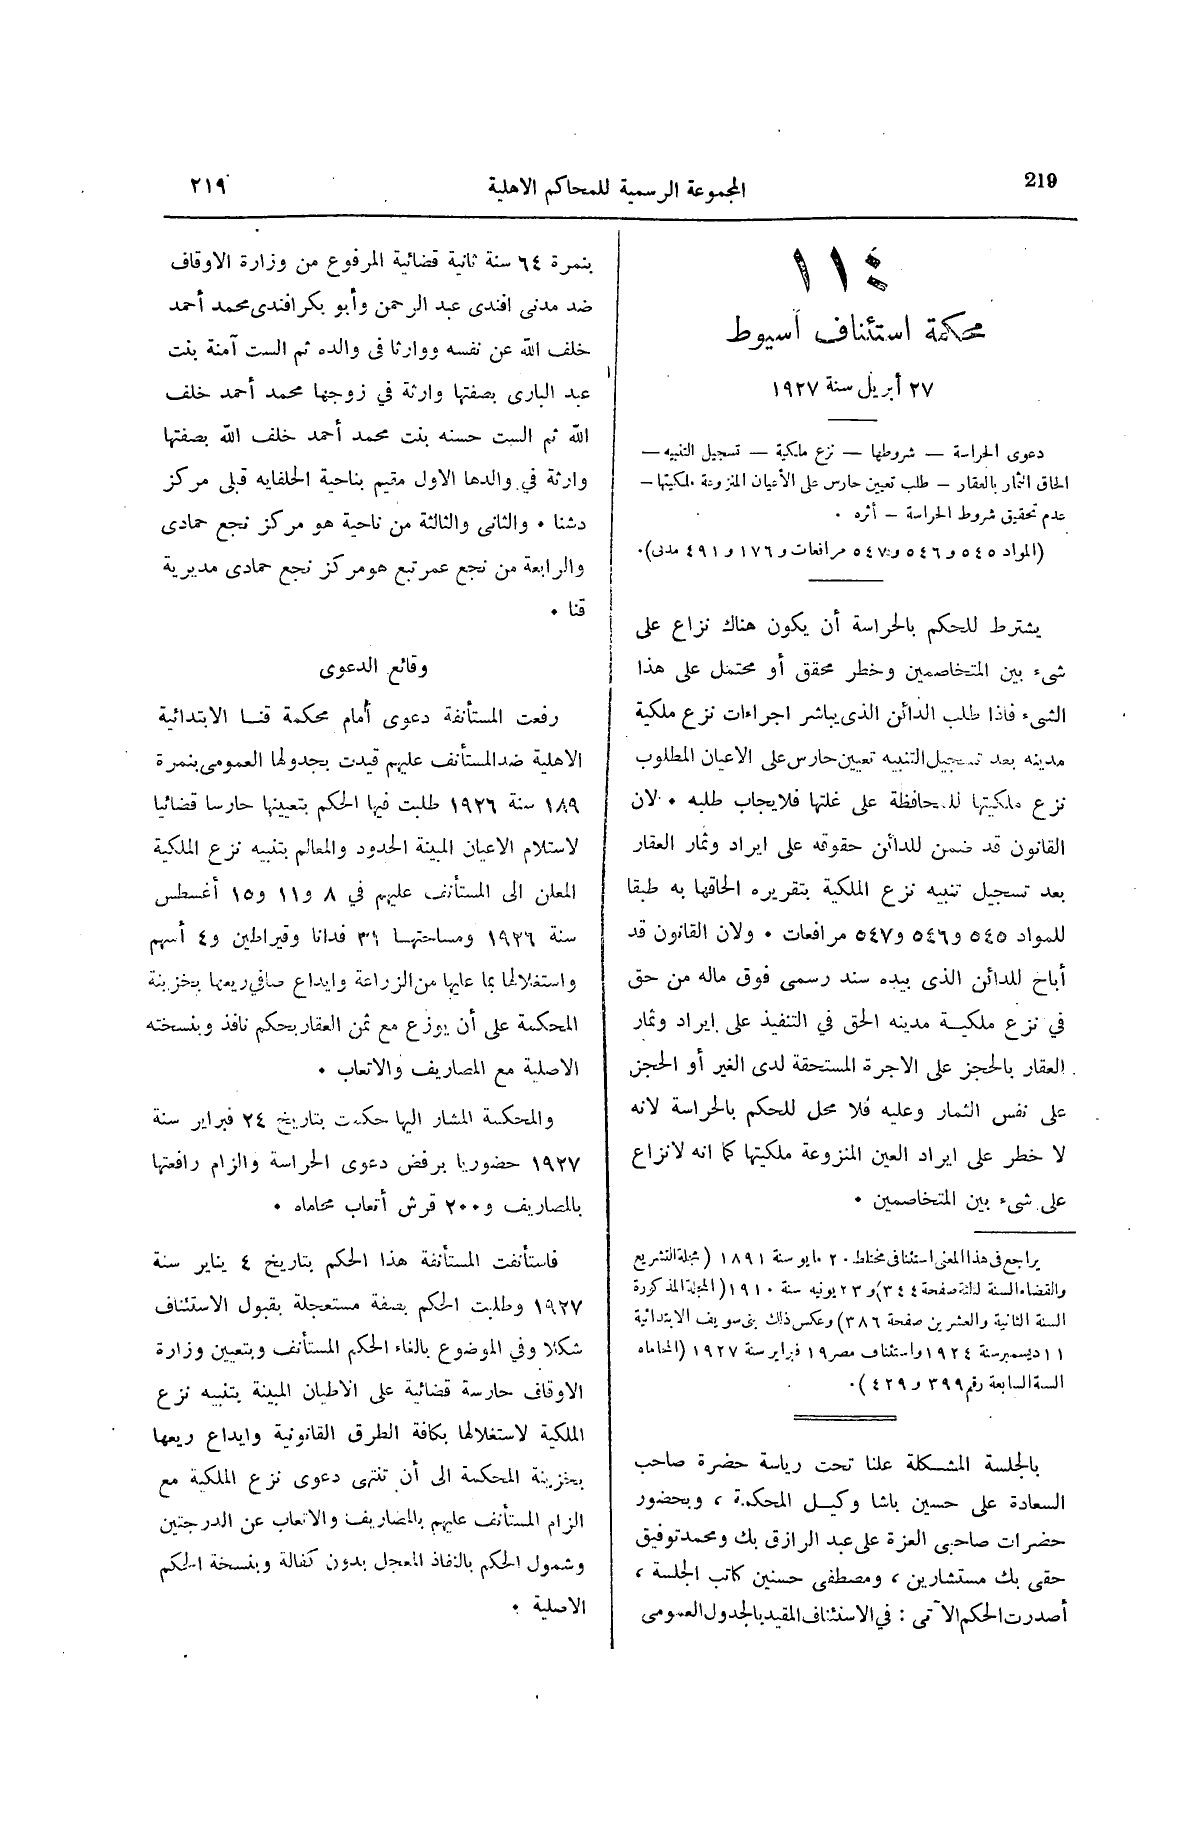 219
المجموعة الرسمية للمحاكم الاهلية
٢١٩
١١٤
محكمة استئناف أسيوط
٢٧ أبريل سنة ١٩٢٧
دعوى الحراسة — شروطها — نزع ملكية — تسجيل التنبيه —
الحاق الثمار بالعقار — طلب تعيين حارس على الأعيان المنزوعة ملكيتها —
عدم تحقيق شروط الحراسة — أثره .
(المواد ٥٤٥ و ٥٤٦ و ٥٤٧ مرافعات و ١٧٦ و ٤٩١ مدنى).
يشترط للحكم بالحراسة أن يكون هناك نزاع على
شىء بين المتخاصمين وخطر محقق أو محتمل على هذا
الشىء فاذا طلب الدائن الذى يباشر اجراءات نزع ملكية
مدينه بعد تسجيل التنبيه تعيين حارس على الاعيان المطلوب
نزع ملكيتها للمحافظة على غلتها فلا يجاب طلبه . لان
القانون قد ضمن للدائن حقوقه على ايراد وثمار العقار
بعد تسجيل تنبيه نزع الملكية بتقريره الحاقها به طبقا
للمواد ٥٤٥ و٥٤٦ و٥٤٧ مرافعات . ولان القانون قد
أباح للدائن الذى بيده سند رسمى فوق ماله من حق
في نزع ملكية مدينه الحق في التنفيذ على إيراد وثمار
العقار بالحجز على الاجرة المستحقة لدى الغير أو الحجز
على نفس الثمار وعليه فلا محل للحكم بالحراسة لانه
لا خطر على ايراد العين المنزوعة ملكيتها كما انه لانزاع
على شىء بين المتخاصمين .
يراجع فى هذا المعنى استئنافى مختلط ٢٠ مايو سنة ١٨٩١ (مجلة التشريع
والقضاء السنة الثالثة صفحة ٣٤٤) و ٢٣ يونيه سنة ١٩١٠ (المجلة المذكورة
السنة الثانية والعشرين صفحة ٣٨٦) وعكس ذلك بنى سويف الابتدائية
١١ ديسمبر سنة ١٩٢٤ واستئناف مصر ١٩ فبراير سنة ١٩٢٧ (المحاماه
السنة السابعة رقم ٣٩٩ و ٤٢٩).
بالجلسة المشكلة علنا تحت رياسة حضرة صاحب
السعادة على حسين باشا وكيل المحكمة ، وبحضور
حضرات صاحبى العزة على عبد الرازق بك ومحمد توفيق
حقى بك مستشارين ، ومصطفى حسنين كاتب الجلسة ،
أصدرت الحكم الآتى : في الاستئناف المقيد بالجدول العمومى
بنمرة ٦٤ سنة ثانية قضائية المرفوع من وزارة الاوقاف
ضد مدنى افندى عبد الرحمن وأبو بكر افندى محمد أحمد
خلف الله عن نفسه ووارثا فى والده ثم الست آمنة بنت
عبد البارى بصفتها وارثة في زوجها محمد أحمد خلف
الله ثم الست حسنه بنت محمد أحمد خلف الله بصفتها
وارثة في والدها الاول مقيم بناحية الحلفايه قبلى مركز
دشنا . والثانى والثالثة من ناحية هو مركز نجع حمادى
والرابعة من نجع عمر تبع هو مركز نجع حمادى مديرية
قنا .
وقائع الدعوى
رفعت المستأنفة دعوى أمام محكمة قنا الابتدائية
الاهلية ضد المستأنف عليهم قيدت بجدولها العمومى بنمرة
١٨٩ سنة ١٩٢٦ طلبت فيها الحكم بتعيينها حارسا قضائيا
لاستلام الاعيان المبينة الحدود والمعالم بتنبيه نزع الملكية
المعلن الى المستأنف عليهم في ٨ و١١ و١٥ أغسطس
سنة ١٩٢٦ ومساحتها ٣١ فدانا وقيراطين و٤ أسهم
واستغلالها بما عليها من الزراعة وايداع صافى ريعها بخزينة
المحكمة على أن يوزع مع ثمن العقار بحكم نافذ وبنسخته
الاصلية مع المصاريف والاتعاب .
والمحكمة المشار اليها حكمت بتاريخ ٢٤ فبراير سنة
١٩٢٧ حضوريا برفض دعوى الحراسة والزام رافعتها
بالمصاريف و٢٠٠ قرش أتعاب محاماه .
فاستأنفت المستأنفة هذا الحكم بتاريخ ٤ يناير سنة
١٩٢٧ وطلبت الحكم بصفة مستعجلة بقبول الاستئناف
شكلا وفي الموضوع بالغاء الحكم المستأنف وبتعيين وزارة
الاوقاف حارسة قضائية على الاطيان المبينة بتنبيه نزع
الملكية لاستغلالها بكافة الطرق القانونية وايداع ريعها
بخزينة المحكمة الى أن تنتهى دعوى نزع الملكية مع
الزام المستأنف عليهم بالمصاريف والاتعاب عن الدرجتين
وشمول الحكم بالنفاذ المعجل بدون كفالة وبنسخة الحكم
الاصلية .